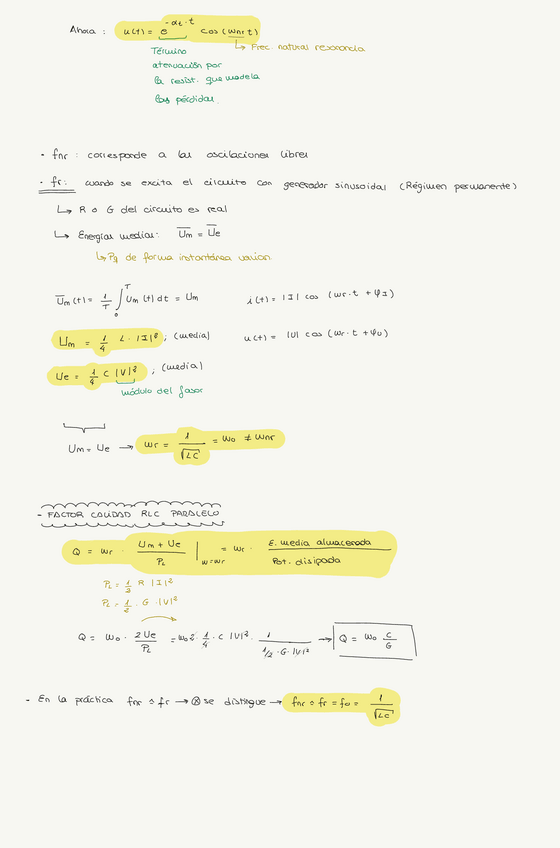 Ahora : u(t) = e^{-αt·t} cos(wnr t)
↳ Frec. natural resonancia
Término
atenuación por
la resist. que modela
las pérdidas.
· fnr : corresponde a las oscilaciones libres
- fr : cuando se excita el circuito con generador sinusoidal (Régimen permanente)
↳ R o G del circuito es real
↳ Energías medias: Ūm = Ūe
↳ Pq de forma instantánea varian
Ūm(t) = 1/T ∫₀ᵀ Um(t) dt = Um
i(t) = |I| cos (wr·t + φI)
Um = 1/4 L · |I|² ; (media)
u(t) = |U| cos (wr·t + φu)
Ue = 1/4 C |V|² ; (media)
módulo del fasor
Um = Ue → wr = 1/√LC = wo ≠ wnr
- FACTOR CALIDAD RLC PARALELO
Q = wr · (Um + Ue)/PL |w=wr = wr · E. media almacenada / Pot. disipada
PL = 1/2 R |I|²
PL = 1/2 · G · |V|²
Q = wo · 2Ue/PL = wo 2 · 1/4 · C |V|² · 1/(1/2 · G · |V|²) → Q = wo C/G
- En la práctica fnr ≎ fr → se distingue → fnr ≎ fr = fo = 1/√LC